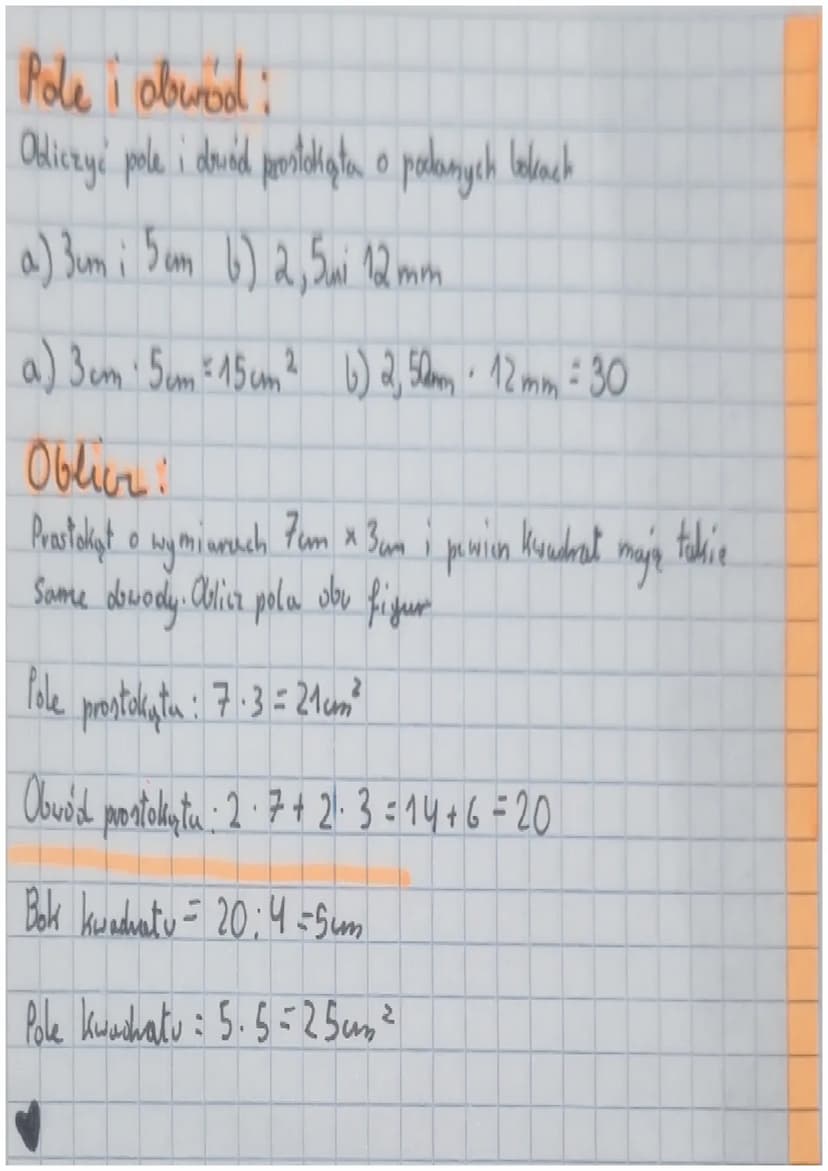 Pole i obwód:
Obliczyć pole i obwód prostokąta o podanych bokach
a) 3cm i 5cm b) 2,5cm i 12mm
a) 3cm · 5cm = 15cm² b) 2,50mm · 12mm = 30
Oblicz:
Prostokąt o wymiarach 7cm x 3cm i pewien kwadrat mają takie
same obwody. Oblicz pola obu figur
Pole prostokąta: 7·3=21cm²
Obwód prostokąta: 2·7+2·3=14+6=20
Bok kwadratu = 20:4=5cm
Pole kwadratu: 5·5=25cm²